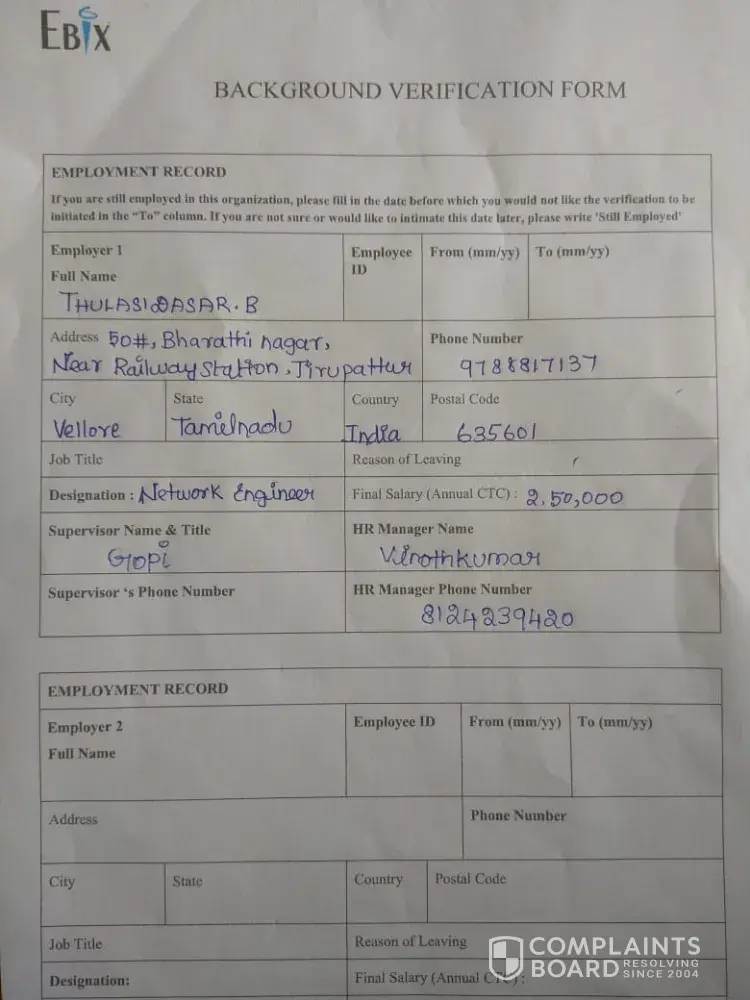 EBIX
BACKGROUND VERIFICATION FORM
EMPLOYMENT RECORD
If you are still employed in this organization, please fill in the date before which you would not like the verification to be
initiated in the “To” column. If you are not sure or would like to intimate this date later, please write 'Still Employed'
Employer 1
Full Name
THULASIDASAR. B
Employee
ID
From (mm/yy)
To (mm/yy)
Address 50#, Bharathi nagar,
Near Railway Station, Tirupattur
Phone Number
9788817137
City
Vellore
State
Tamilnadu
Country
India
Postal Code
635601
Job Title
Reason of Leaving
Designation : Network Engineer
Final Salary (Annual CTC) : 2,50,000
Supervisor Name & Title
Gopi
HR Manager Name
Vinothkumar
Supervisor ‘s Phone Number
HR Manager Phone Number
8124239420
EMPLOYMENT RECORD
Employer 2
Full Name
Employee ID
From (mm/yy)
To (mm/yy)
Address
Phone Number
City
State
Country
Postal Code
Job Title
Reason of Leaving
Designation:
Final Salary (Annual CTC) :
COMPLAINTS
BOARD RESOLVING
SINCE 2004